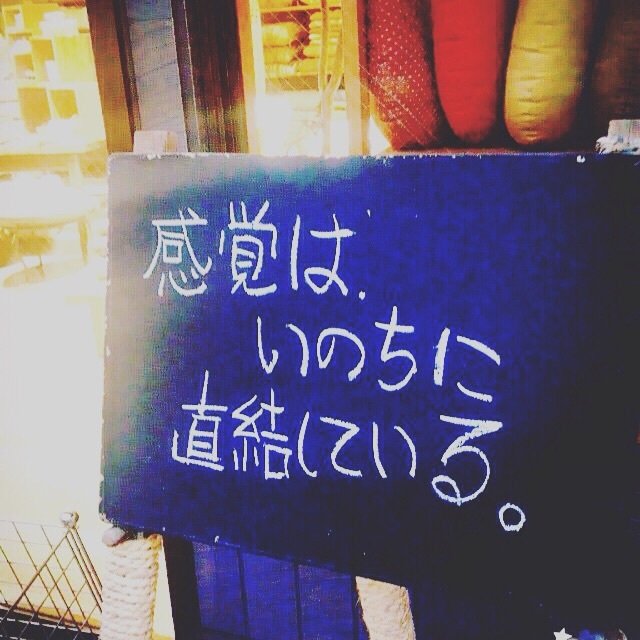 感覚は、
いのちに
直結している。